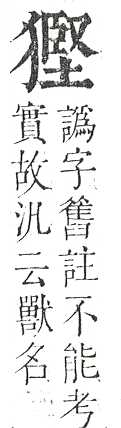 譌字舊註不能考
實故汎云獸名